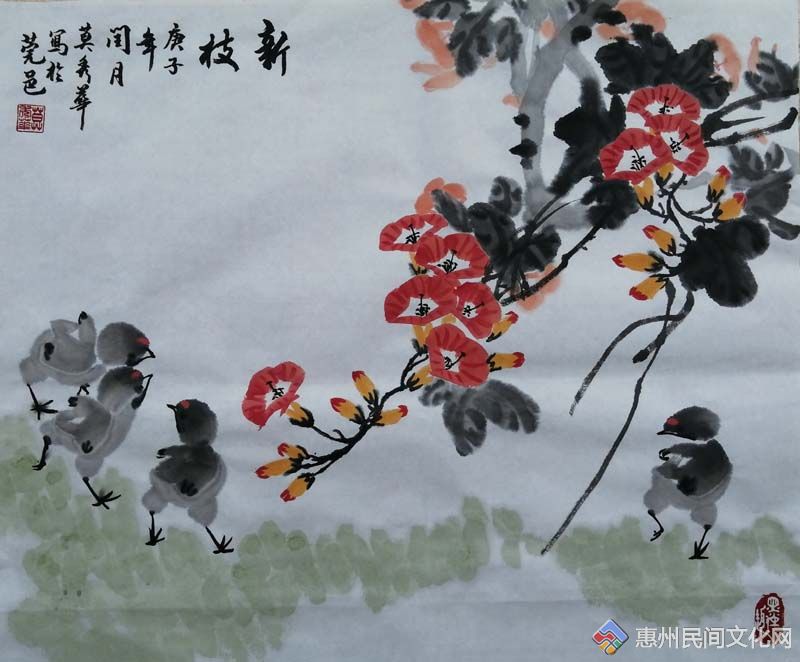 新枝
庚子
年
闰月
莫秀華
寫於
莞邑
惠州民间文化网